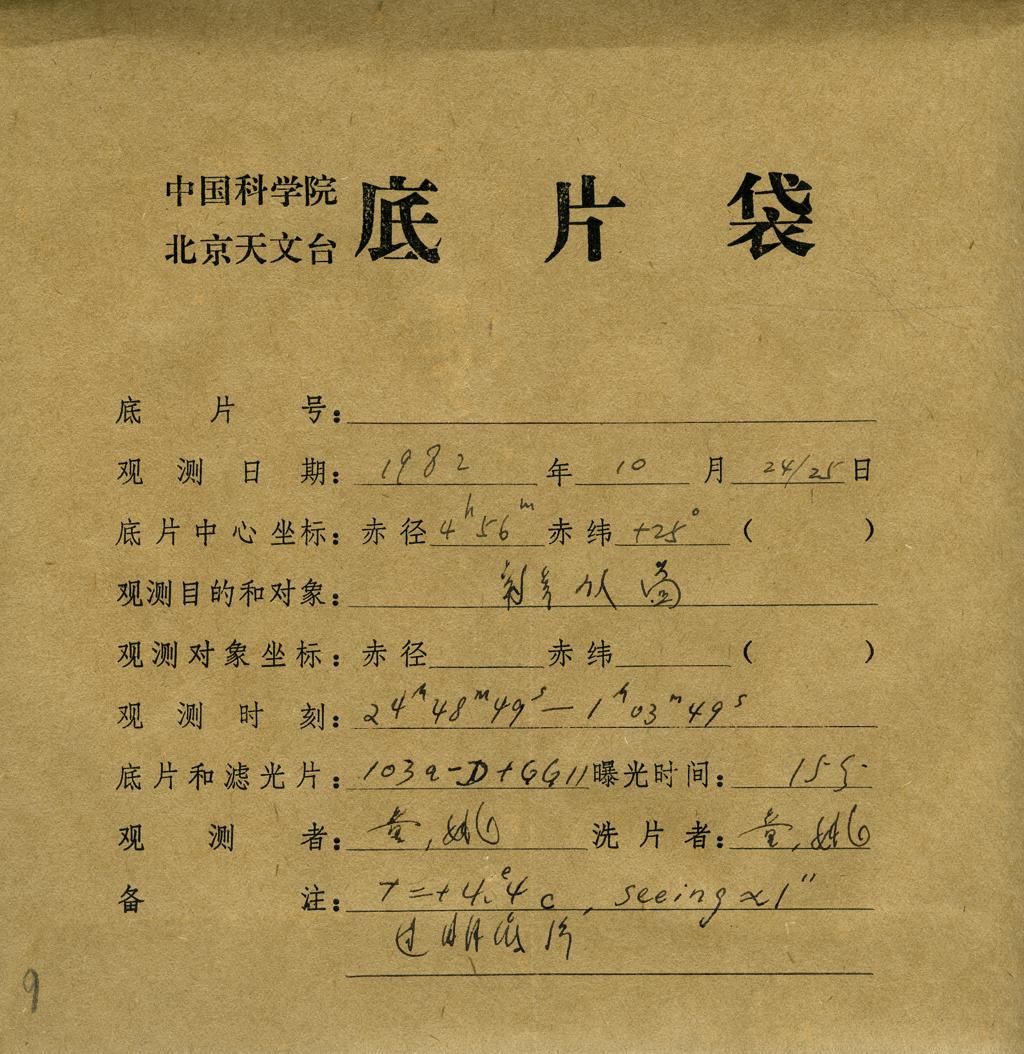 中国科学院
北京天文台
底片袋
底片号:
观测日期: 1982 年 10 月 24/25 日
底片中心坐标: 赤径 4h56m 赤纬 +25° ( )
观测目的和对象:
观测对象坐标: 赤径 赤纬 ( )
观测时刻: 24h48m49s — 1h03m49s
底片和滤光片: 103a-D+GG11 曝光时间: 15分
观测者: 童, 姚 洗片者: 童, 姚
备注: T=+4.°4 c, seeing ∝1"
9